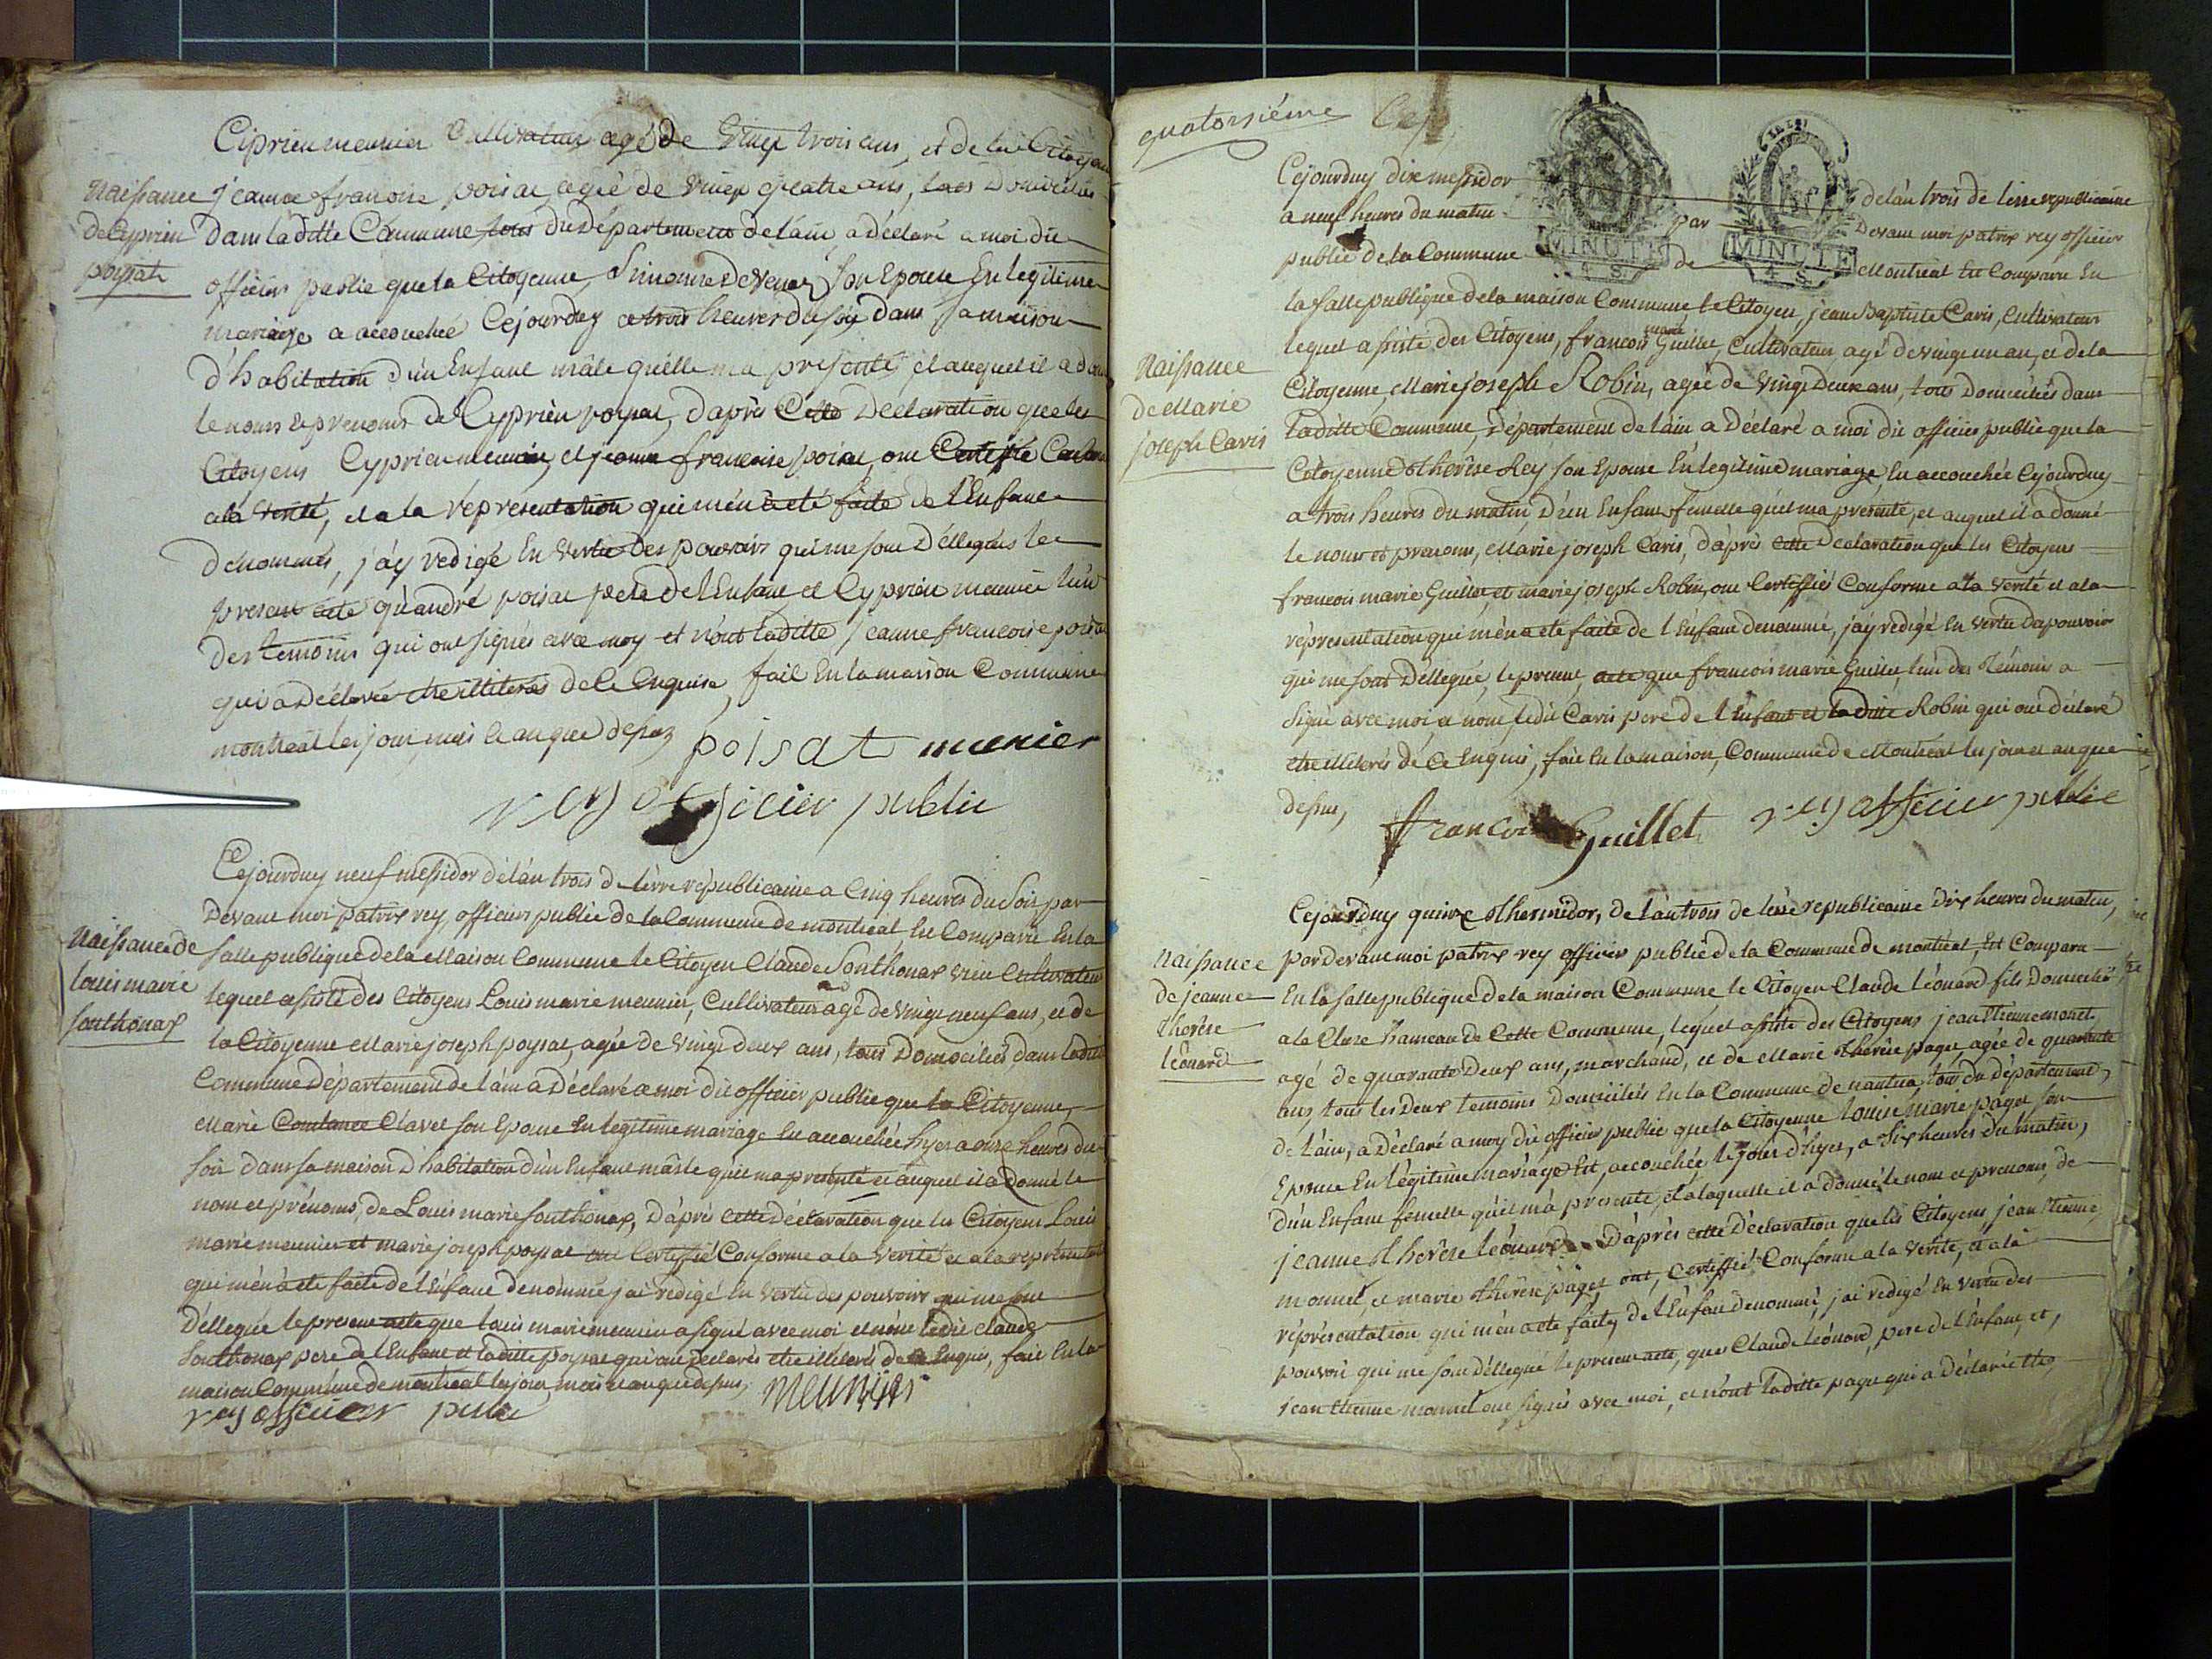 Ciprien meunier Cultivateur agé de Vingt trois ans, et de la Citoyenne
Naissance
de Cyprien
poysat
jeanne francoise poisat agée de vingt quatre ans, tous Domiciliés
Dans laditte Commune tous du Département de lain a Déclaré a moi dit
officier public que la Citoyenne Simonne Devenaz Son Epouse En legitime
mariage a accouchée Cejourduy a trois heures du soir Dans Sa maison
D'habitation D'un Enfant mâle quelle ma presenté et auquel il a donné
le nom et prenoms de Cyprien poysat, Daprès Cette Declaration que les
Citoyens Cyprien meunier, et jeanne francoise poisat, ont Certifié Conforme
a la verité, et a la réprésentation qui mén à eté faite de l'Enfant
dénommé, j'ay redigé En vertu des pouvoirs qui me sont Déllegués le
present acte qu'andré poisat pere de l'Enfant et Cyprien meunier l'un
des temoins qui ont signés avec moy et n'ont laditte jeanne francoise poisat
qui a Déclarée etre illiterée de Ce Enquise, fait En la maison Commune
montréal les jour, mois et an que dessus poisat munier
rey officier public
Cejourduy neuf messidor de l'an trois de l'erre républicaine a Cinq heures du Soir par
Devant moi patrix rey, officier public de la Commune de montréal Est Comparu En la
Naissance de
louis marie
sonthonax
salle publique de la Maison Commune le Citoyen Claude Sonthonax vieu Cultivateur
lequel assisté des Citoyens Louis marie meunier, Cultivateur agé de vingt neuf ans, et de
la Citoyenne Marie joseph poysat, agée de vingt deux ans, tous Domiciliés, dans laditte
Commune Département de lain a Déclaré a moi dit officier public que la Citoyenne
Marie Constance Clavel son Epouse En legitime mariage Est accouchée hyer a onze heures du
soir dans sa maison D'habitation d'un Enfant mâsle quil ma presenté et auquel il a Donné le
nom et prénoms, de Louis marie sonthonax, D'áprès Cette Déclaration que les Citoyens Louis
marie meunier et marie joseph poysat ont Certiffié Conforme a la verité et a la représentation
qui mén à eté faite de l'Enfant denommé j'ai redigé En vertu des pouvoirs qui me sont
Délleguée le present acte que louis marie meunier a signé avec moi et non ledit claude
Sonthonax pere de l'Enfant et laditte poysat qui ont déclarés etre illiterés de Ce Enquis, fait En la
maison Commune de montréal les jour, mois et an que dessus, Meunier
rey officier public
quatorsiéme
Cejourduy dix messidor de lan trois de lerre republicaine
a neuf heures du matin par Devant moi patrix rey officier
public de la Commune de Montréal Est Comparu En
MINUTE
4 S.
MINUTE
4 S.
la salle publique de la maison Commune le Citoyen, jean Baptiste Caris, Cultivateur
Naissance
de Marie
joseph Caris
lequel assisté des Citoyens, francois marie Guillet, Cultivateur agé de vingt un an, et de la
Citoyenne, Marie joseph Robin, agée de vingt Deux ans, tous Domiciliés dans
laditte Commune, Département de láin a Déclaré a moi dit officier public que la
Citoyenne thérèse Rey son Epouse En legitime mariage, Est accouchée Cejourduy
a trois heures du matin, D'un Enfant femelle qu'il ma présenté, et auquel il a donné
le nom et prenoms, Marie joseph Caris, d'après Cette Declaration que les Citoyens
francois marie Guillet, et marie joseph Robin, ont Certiffiés Conforme a la verité et a la
répresentation qui mèn a eté faite de l'Enfant denommé, j'ay redigé En vertu da pouvoir
qui me sont Déllegué, le present acte que francois marie Guillet, l'un des témoins a
signé avec moi, et nont ledit Caris pere de l'Enfant et laditte Robin qui ont déclaré
etre illiterés de Ce Enquis, fait En la maison, Commune de Montréal les jour et an que
dessus, francois Guillet rey officier public
Cejourduy quinze thermidor, de l'an trois de l'ere republicaine Dix heures du matin,
Naissance
de jeanne
therèse
léonard
par Devant moi patrix rey officier public de la Commune de montréal, Est Comparu
En la salle publique de la maison Commune le Citoyen Claude léonard fils Domicilié
a la Cluse hameau de Cette Commune, lequel assisté des Citoyens jean Etienne monet
agé de quarante Deux ans, marchand, et de Marie thérèse paget, agée de quarante
ans, tous les Deux temoins Domiciliés En la Commune de nantua, tous du Département,
de láin, a Déclaré a moy dit officier public que la Citoyenne Louise marie paget son
Epouse En légitime mariage Est, accouchée, le jour d'hyer, a Six heures du matin,
D'un Enfant femelle qu'il m'á presenté, et a laquelle il a donné le nom et prenoms, de
jeanne thérèse léonard. D'áprès cette Déclaration que les Citoyens, jean Etienne
monnet, et marie thérèse paget ont, Certiffié Conforme a la verité, et a la
réprésentation qui mèn a eté faite, de l'Enfant denommé, j'ai redigé En vertu des
pouvoir qui me sont déllegué le present acte, que Claude léonard, pere de l'Enfant, et,
jean Etienne monnet ont signés avec moi, et n'ont laditte paget qui a déclarée etre